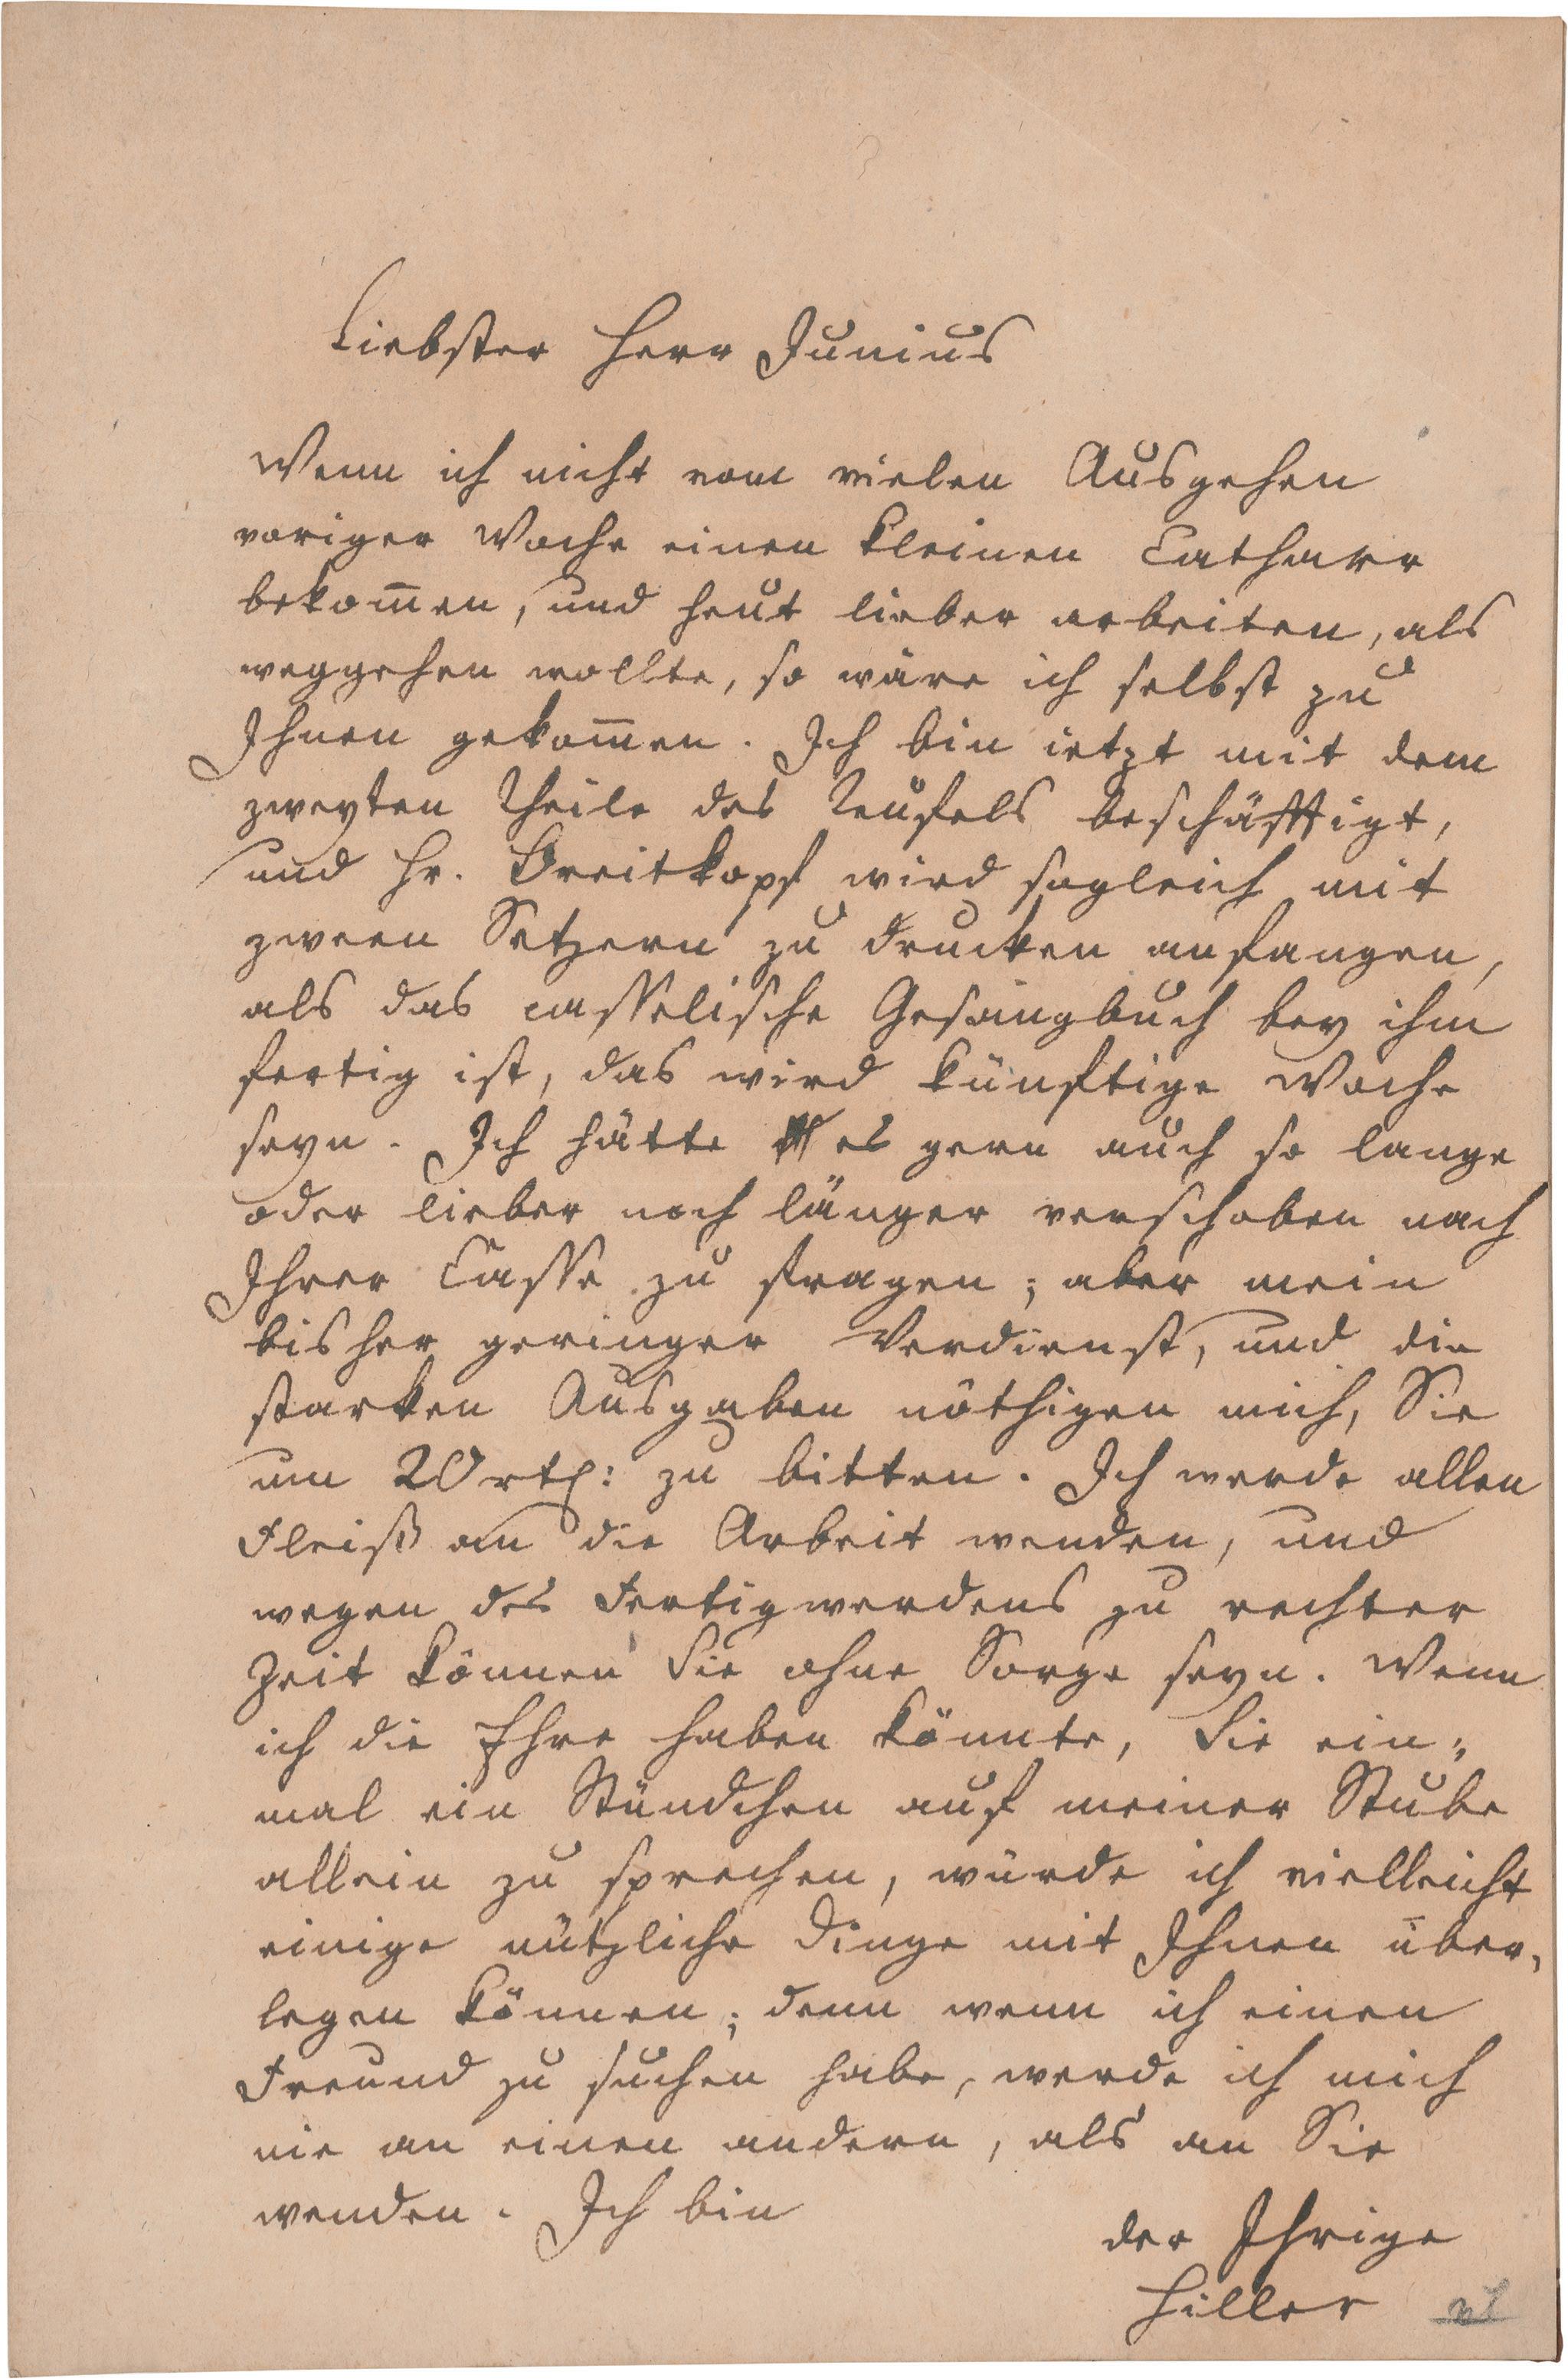 Liebster Herr Junius
Wenn ich nicht vom vielen Ausgehen
voriger Woche einen kleinen Catharr
bekom̄en, und heut lieber arbeiten, als
weggehen wollte, so wäre ich selbst zu
Ihnen gekom̄en. Ich bin ietzt mit dem
zweyten Theile des Teufels beschäfftigt,
und Hr. Breitkopf wird sogleich mit
zween Setzern zu drucken anfangen,
als das casselische Gesangbuch bey ihm
fertig ist, das wird künftige Woche
seyn. Ich hätte es gern auch so lange
oder lieber noch länger verschoben nach
Ihrer Casse zu fragen; aber mein
bisher geringer Verdienst, und die
starken Ausgaben nöthigen mich, Sie
um 20 rthl: zu bitten. Ich werde allen
Fleiß an die Arbeit wenden, und
wegen des Fertigwerdens zu rechter
Zeit können Sie ohne Sorge seyn. Wenn
ich die Ehre haben könnte, Sie ein-
mal ein Stündchen auf meiner Stube
allein zu sprechen, würde ich vielleicht
einige nützliche Dinge mit Ihnen über-
legen können; denn wenn ich einen
Freund zu suchen habe, werde ich mich
nie an einen andern, als an Sie
wenden. Ich bin
der Ihrige
Hiller